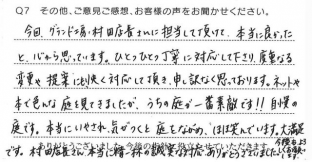 Q7 その他、ご意見ご感想、お客様の声をお聞かせください。
今回、グランド工房・村田店長さんに担当して頂けて、本当に良かった
と、心から思っています。ひとつひとつ丁寧に対応して下さり、度重なる
変更や提案にも快く対応して頂き、申し訳なく思っております。ネットや
本で色んな庭を見てきましたが、うちの庭が一番素敵です!!自慢の
庭です。本当にいやされ、気がつくと庭をながめ、ほほ笑んでいます。大満足
です。村田店長さん、本当に精一杯の誠実な対応ありがとうございました。
今後もよろしくお願い
ありがとうございました。今後の
役立たせていただきます。